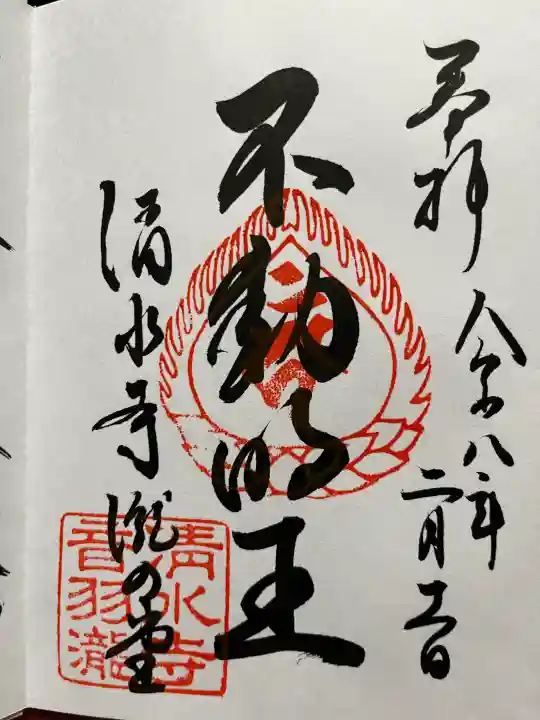 奉拝
令和八年
二月 日
不動明王
清水寺
瀧の堂
清水寺
音羽瀧